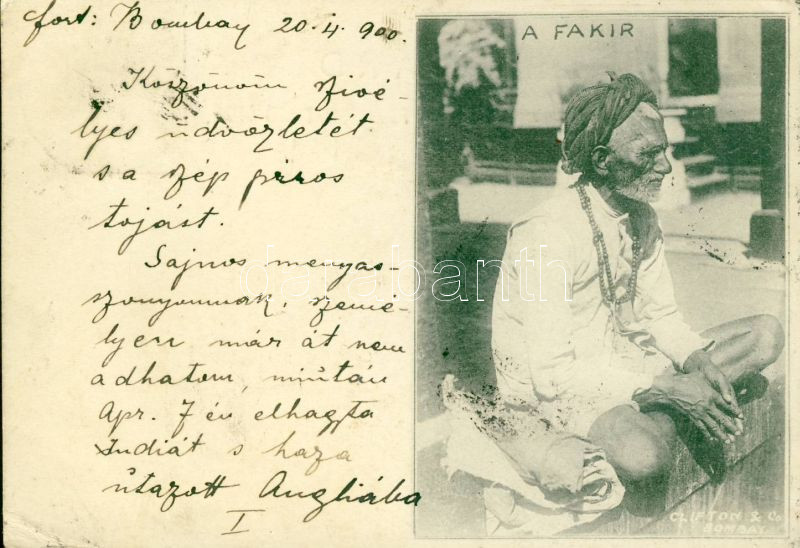 fort: Bombay 20.4.900.
A FAKIR
Köszönöm szivé-
lyes üdvözletét
s a szép piros
tojást.
Sajnos menyas-
szonyomnak, szemé-
lyen már át nem
adhatom, miűtán
Apr. 7 én elhagyta
Indiát s haza
űtazott Angliába
I
darabanth
CLIFTON & Co
BOMBAY.